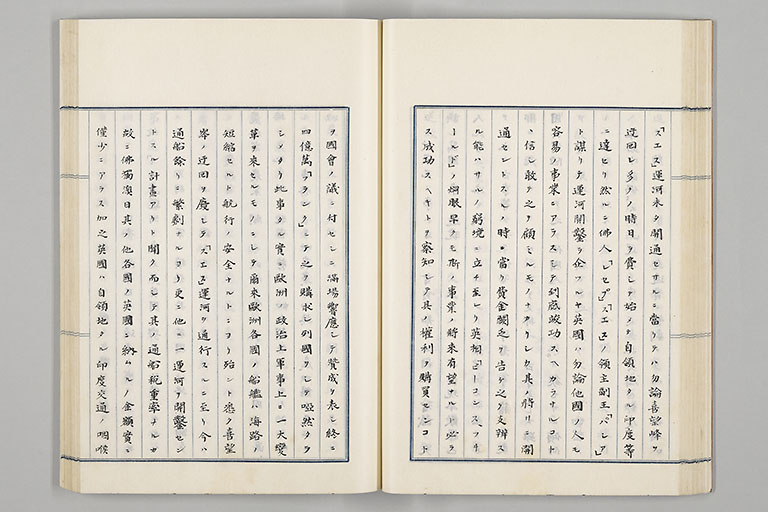 「スエス」運河未タ開通セサルニ當リテハ勿論喜望峰ヲ
迂回シ多クノ時日ヲ費シテ始メテ自領地タル印度等
ニ達セリ然ルニ佛人「レセプ」「スエス」ノ領主副王「パシア」
ト謀リテ運河開鑿ヲ企ツルヤ英國ハ勿論他國ノ人モ
容易ノ事業ニアラスシテ到底竣功スヘカラサルコト
ヽ信シ敢テ之ヲ顧ミルモノナカリシ女其ノ將ニ開
通セントスルノ時ニ當リ資金闕乏ヲ告ケ之ヲ支辨ス
ル能ハサルノ窮境ニ立チ至レリ英相「ビーコンスフヰ
ールド」ノ烱眼早クモ斯ノ事業ノ將来有望ナル必ラ
ス成功スヘキトヲ察知シテ其ノ權利ヲ購買センコト
ヲ國會ノ議ニ付セシニ滿場響應シテ賛成ヲ表シ終ニ
四億萬「フランク」ニテ之ヲ購求シ列國ヲシテ啞然タラ
シメタリ此事タル實ニ歐洲ノ政治上軍事上ニ一大變
革ヲ来セルモノニシテ爾来歐洲各國ノ船艦ハ海路ノ
短縮セルト航行ノ安全ナルトニヨリ殆ント悉ク喜望
峯ノ迂回ヲ廢シテ「スエス」運河ヲ通行スルニ至リ今ハ
通船餘リニ繁劇ナルヨリ更ニ他ニ一運河ヲ開鑿セン
トスル計畫アリト聞ク而シテ其ノ通船税重率ナルカ
故ニ佛獨澳日其ノ他各國ノ英國ニ納ムルノ金額實ニ
僅少ニアラス加之英國ハ自領地タル印度交通ノ咽喉